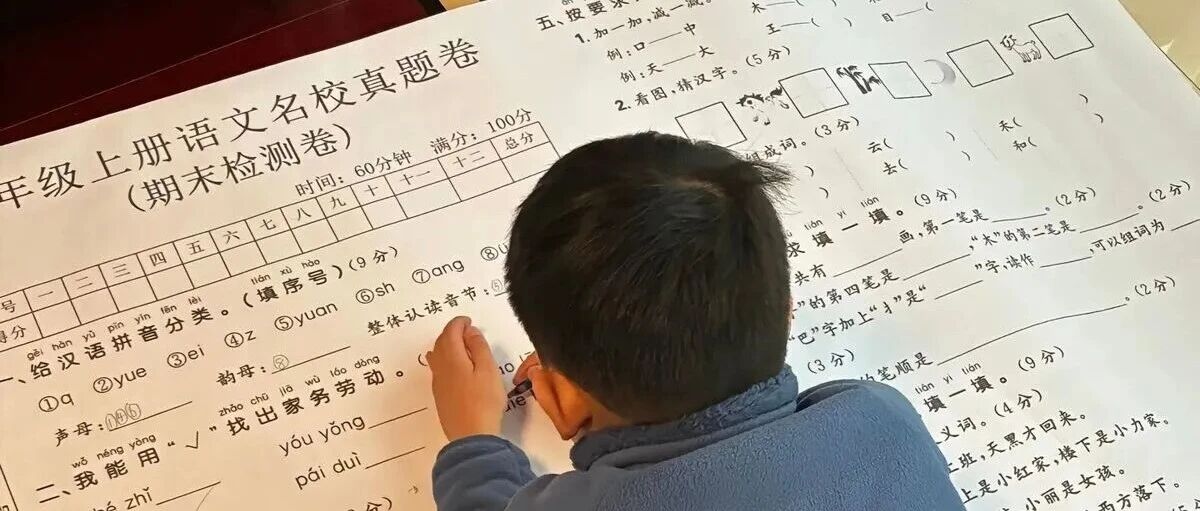 年级上册语文名校真题卷
(期末检测卷)
时间：60分钟 满分：100分
号 一 二 三 四 五 六 七 八 九 十 十一 十二 总分
得分
gěi hàn yǔ pīn yīn fēn lèi tián xù hào
一、给汉语拼音分类。(填序号)(9分)
①q ②yue ③ei ④z ⑤yuan ⑥sh ⑦ang ⑧
声母： 韵母：⑧ 整体认读音节：
wǒ néng yòng zhǎo chū jiā wù láo dòng
二、我能用“√”找出家务劳动。(
yóu yǒng
zhǐ pái duì
五、按要求
1. 加一加，减一减。
例：口——中 木——( )
例：天——大 王——( ) 日——(
2. 看图，猜汉字。(5分)
组成词。(3分)
云( ) 禾( )
去( ) 和(
tián yi tián
求填一填。(9分)
共有 画，第一笔是 。(2分)
”的第四笔是 ，“木”的第二笔是 。(2分)
“巴”字加上“扌”是“ ”字，读作 ，可以组词为
的笔顺是 。(2分)
(3分)
tián yi tián
填一填。(9分)
义词。(4分)
上班，天黑才回来。
上是小红家，楼下是小力家。
，小丽是女孩。
西方落下。